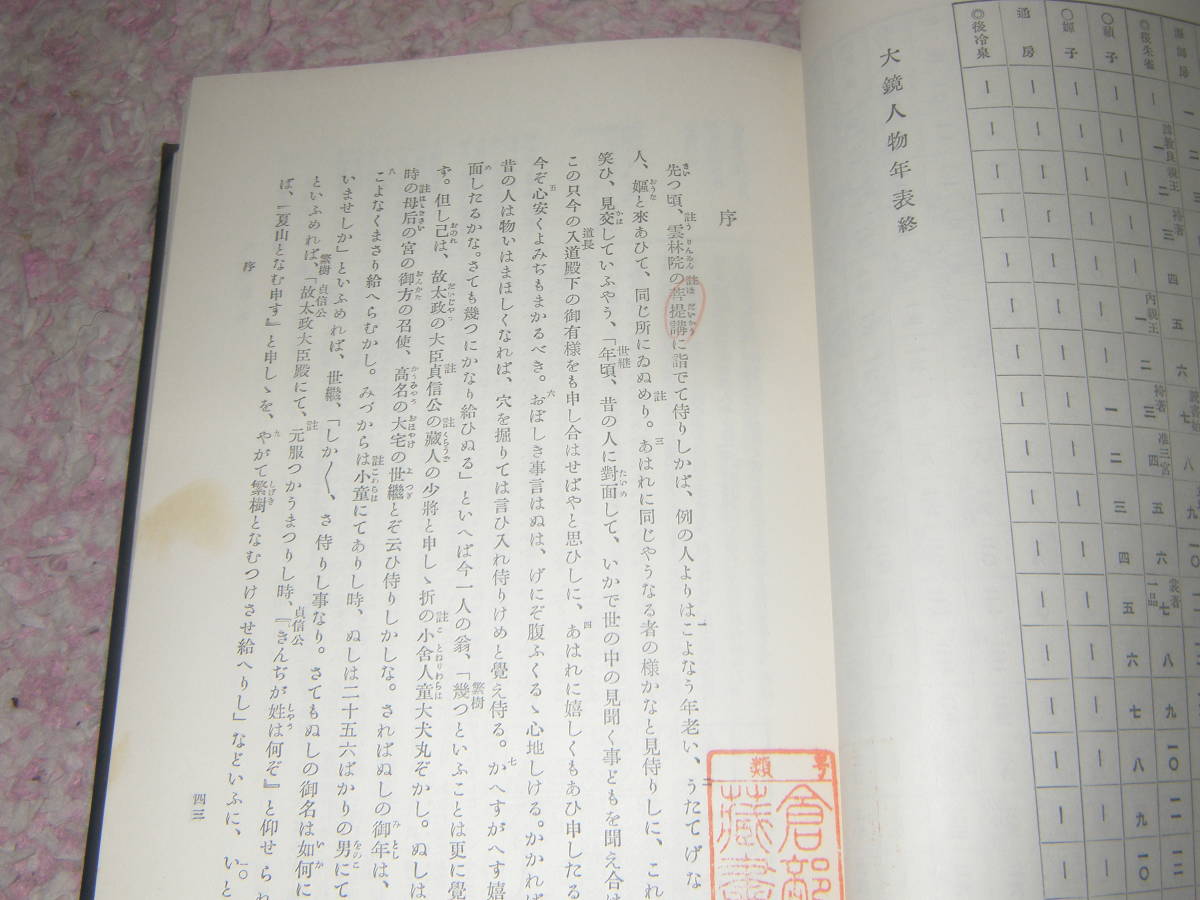 大鏡人物年表終
◎後朱雀
○禎子
○嫄子
通房
◎後冷泉
序
先つ頃、雲林院の菩提講に詣でて侍りしかば、例の人よりはこよなう年老い、うたてげな
人、嫗と來あひて、同じ所にゐぬめり。あはれに同じやうなる者の様かなと見侍りしに、これ
笑ひ、見交していふやう、「年頃、昔の人に對面して、いかで世の中の見聞く事どもを聞え合は
この只今の入道殿下の御有様をも申し合はせばやと思ひしに、あはれに嬉しくもあひ申したる
今ぞ心安くよみぢもまかるべき。おぼしき事言はぬは、げにぞ腹ふくるゝ心地しける。かかれば
昔の人は物いはまほしくなれば、穴を掘りては言ひ入れ侍りけめと覺え侍る。かへすがへす嬉
面したるかな。さても幾つにかなり給ひぬる」といへば今一人の翁、「幾つといふことは更に覺
す。但し己は、故太政の大臣貞信公の藏人の少將と申しゝ折の小舍人童大犬丸ぞかし。ぬしは
時の母后の宮の御方の召使、高名の大宅の世繼とぞ云ひ侍りしかしな。さればぬしの御年は、
こよなくまさり給へらむかし。みづからは小童にてありし時、ぬしは二十五六ばかりの男にて
いませしか」といふめれば、世繼、「しか〱、さ侍りし事なり。さてもぬしの御名は如何に
といふめれば、「故太政大臣殿にて、元服つかうまつりし時、『きんぢが姓は何ぞ』と仰せられ
ば、『夏山となむ申す』と申しゝを、やがて繁樹となむつけさせ給へりし」などいふに、いと
序
四三
類
倉部
藏書